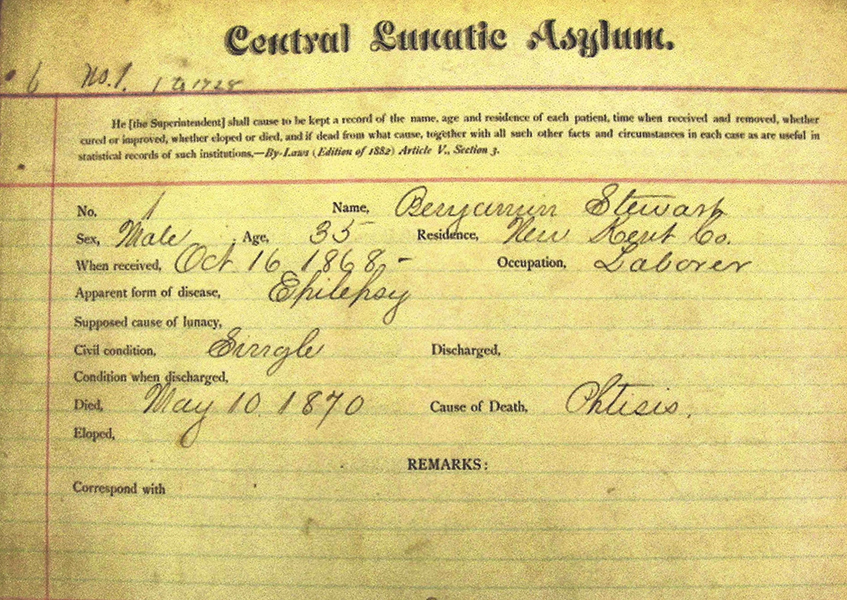 Central Lunatic Asylum.
6 No. 1. 1 to 1728
He [the Superintendent] shall cause to be kept a record of the name, age and residence of each patient, time when received and removed, whether
cured or improved, whether eloped or died, and if dead from what cause, together with all such other facts and circumstances in each case as are useful in
statistical records of such institutions.—By-Laws (Edition of 1882) Article V., Section 3.
No. 1 Name, Benjamin Stewart
Sex, Male Age, 35 Residence, New Kent Co.
When received, Oct 16 1868 - Occupation, Laborer
Apparent form of disease, Epilepsy
Supposed cause of lunacy,
Civil condition, Single Discharged,
Condition when discharged,
Died, May 10. 1870 Cause of Death, Phtisis.
Eloped,
REMARKS:
Correspond with